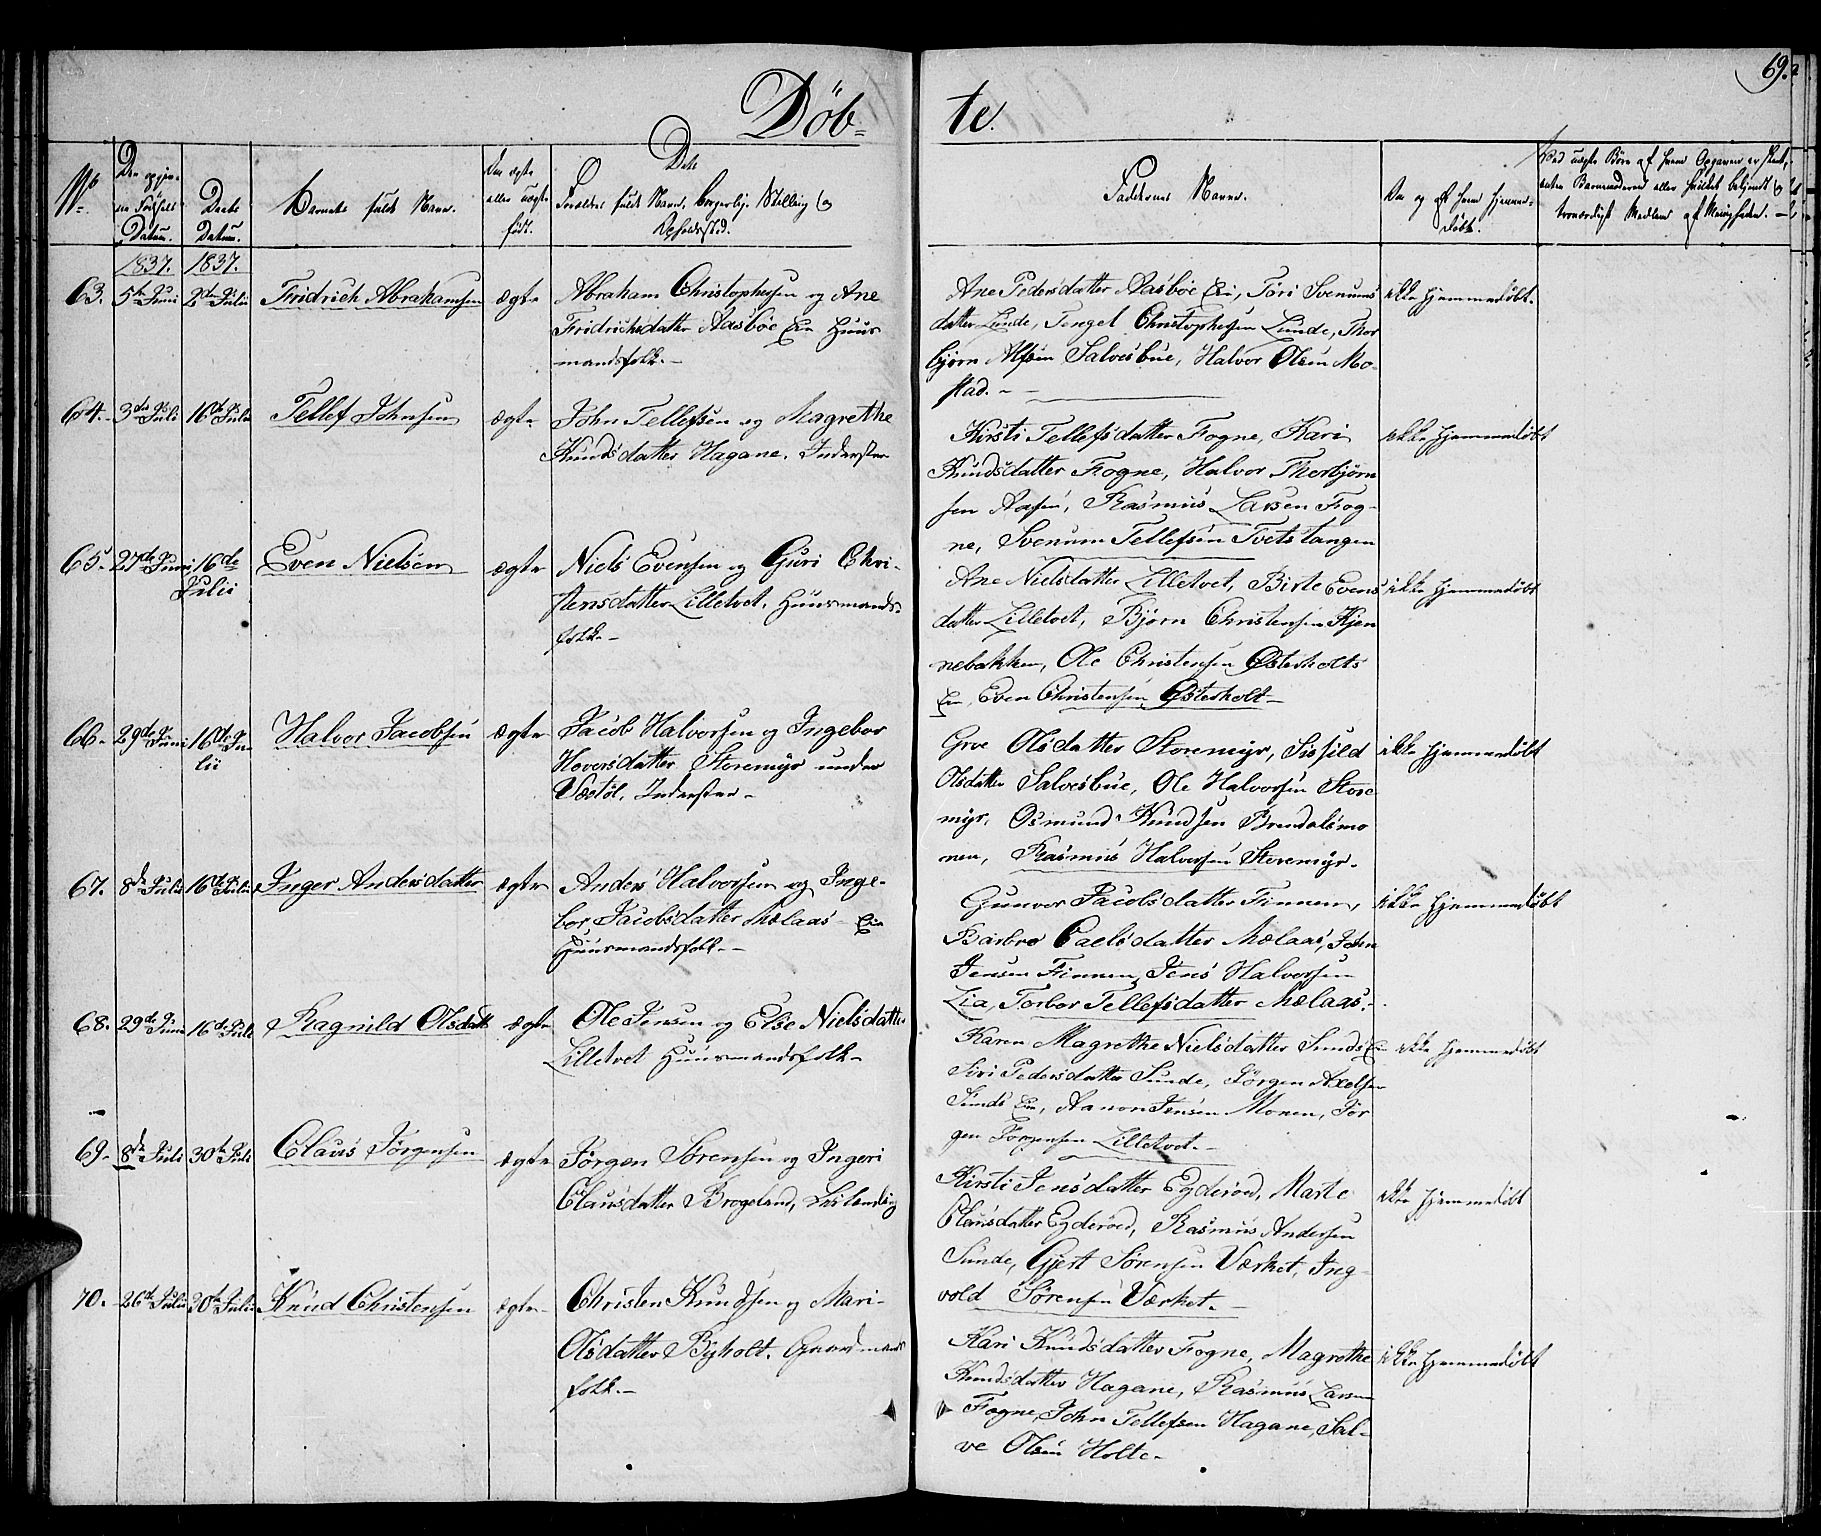 69.
Döb-te.
No
Den opgiv-
ne Fødsels
Datum.
Daabs
Datum.
Barnets fulde Navn.
Om ægte
eller uægte
født.
Dets
Forældres fulde Navn, borgerlig Stilling og
Opholdssted.
Faddernes Navne.
Om og af hvem hjemme-
døbt.
Ved uægte Børn af hvem Opgaven er skeet,
enten Barnemoderen eller hvilket bekjendt og
troværdigt Medlem af Menigheden.
1837. 1837.
63. 5te Juni 2den Julii Fridrich Abrahamsen ægte Abraham Christophersen og Ane
Fridrichsdatter Aasböe Eie Huus
mandsfolk.-
Ane Pedersdatter Aasböe Eie, Töri Svenums
datter Lunde, Tengel Christophersen Lunde, Thor
bjørn Alfsen Salvesbue, Halvor Olsen Mo-
stad.-
ikke hjemmedöbt.
64. 3die Juli 16de Julii Tellef Johnsen ægte John Tellefsen og Magrethe
Knudsdatter Hagane. Inderster
Kirsti Tellefsdatter Fogne, Kari
Knudsdatter Fogne, Halvor Thorbjörn
sen Aasen, Rasmus Larsen Fog-
ne, Svenum Tellefsen Tvetstangen
ikke hjemmedöbt
65. 27de Juni 16de
Julii
Even Nielsen ægte Niels Evensen og Guri Chri-
stensdatter Lilletvet. Huusmands-
folk.-
Ane Nielsdatter Lilletvet, Birte Evens
datter Lilletvet, Björn Christensen Kjen
nebakken, Ole Christensen Østerholts
Eie, Even Christensen Østerholt-
ikke hjemmedöbt
66. 29de Juni 16de Ju-
lii
Halvor Jacobsen ægte Jacob Halvorsen og Ingebor
Hoversdatter Storemyr under
Vestöl. Inderster-
Groe Olsdatter Storemyr, Sissild
Olsdatter Salvesbue, Ole Halvorsen Store
myr, Osmund Knudsen Brendalsmo
nen, Rasmus Halvorsen Storemyr.
ikke hjemmedöbt
67. 8de Julii 16de Julii Inger Andersdatter ægte Anders Halvorsen og Inge-
bor Jacobsdatter Mælaas- Eie
Huusmandsfolk.-
Gunvor Jacobsdatter Finnen,
Barbro Paelsdatter Mælaas, John
Jensen Finnen, Jens Halvorsen
Lia, Torbor Tellefsdatter Mælaas.
ikke hjemmedöbt
68. 29de Juni 16de Julii Ragnild Olsdatt ægte Ole Jensen og Else Nielsdatter
Lilletvet Huusmandsfolk-
Karen Magrethe Nielsdatter Sunds Eie
Siri Pedersdatter Sunde, Jörgen Axelsen
Sunds Eie, Aanon Jensen Monen, Jör
gen Jörgensen Lilletvet.-
ikke hjemmedöbt
69. 8de Juli 30te Juli Claus Jörgensen ægte Jörgen Sörensen og Ingeri
Clausdatter Brogeland,
Kirsti Jensdatter Egderöed, Marte
Clausdatter Egderöed, Rasmus Andersen
Sunde, Gjert Sörensen Værket, Ing-
vold Sörensen Værket.-
ikke hjemmedöbt
70. 26de Julii 30te Julii Knud Christensen ægte Christen Knudsen og Mari-
Olsdatter Byholt. Gaardmands
folk.-
Kari Knudsdatter Fogne, Magrethe
Knudsdatter Hagane, Rasmus Larsen
Fogne, John Tellefsen Hagane, Sal-
ve Olsen Holte-
ikke hjemmedöbt